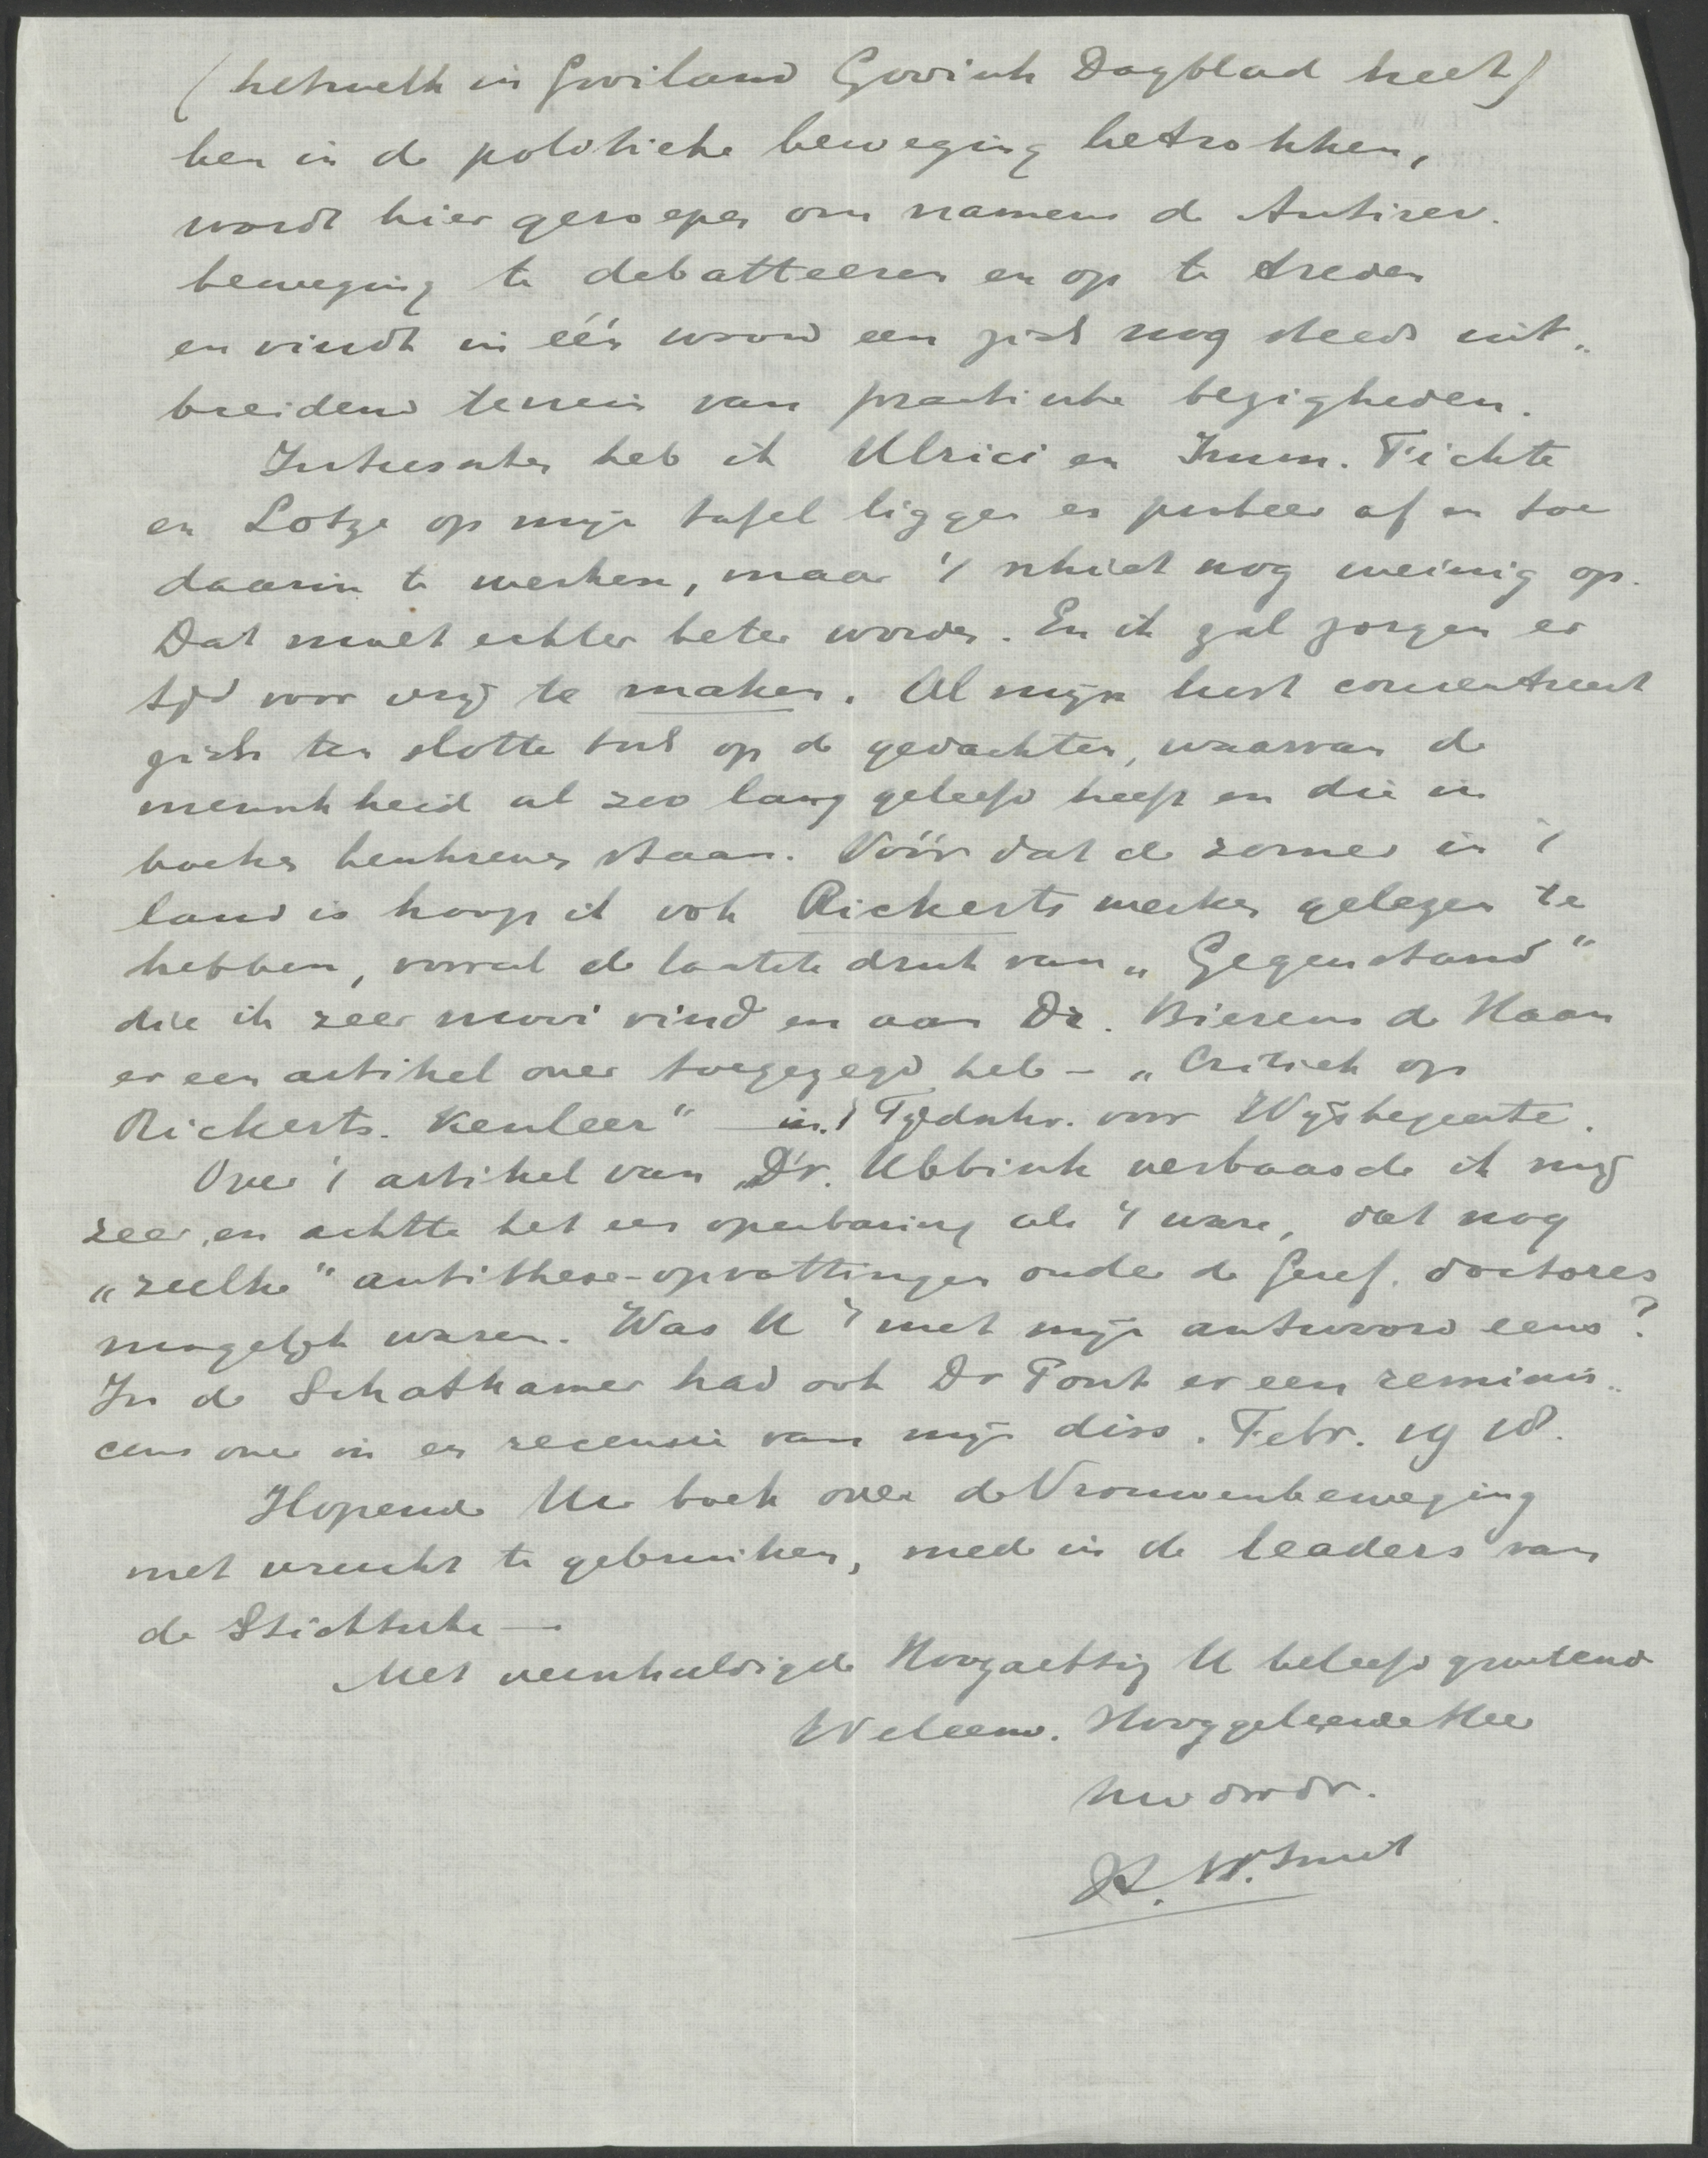 (hetwelk in Gooiland Gooisch Dagblad heet)
ben in de politieke beweging betrokken,
wordt hier geroepen om namens de Antirev.
beweging te debatteeren en op te treden
en vindt in één woord een zich nog steeds uit„
breidend terrein van practische bezigheden.
Intusschen heb ik Ulrici en Imm. Fichte
en Lotze op mijn tafel liggen en probeer af en toe
daarin te werken, maar 't schiet nog weinig op.
Dat moet echter beter worden. En ik zal zorgen er
tijd voor vrij te maken. Al mijn lust concentreert
zich ten slotte toch op de gedachten, waarvan de
menschheid al zoo lang geleefd heeft en die in
boeken beschreven staan. Vóór dat de zomer in 't
land is hoop ik ook Rickerts werken gelezen te
hebben, vooral de laatste druk van „Gegenstand"
die ik zeer mooi vind en aan Dr. Bierens de Haan
er een artikel over toegezegd heb – „Critiek op
Rickerts. Kenleer" – in 't Tijdschr. voor Wijsbegeerte.
Over 't artikel van Dr. Ubbink verbaasde ik mij
zeer, en achtte het een openbaring als 't ware, dat nog
„zulke" antithese-opvattingen onder de Geref. doctores
mogelijk waren. Was U 't met mijn antwoord eens?
In de Schatkamer had ook Dr Pont er een reminis„
cens over in en recensie van mijn diss. Febr. 1918.
Hopende Uw boek over de Vrouwenbeweging
met vrucht te gebruiken, mede in de leaders van
de Stichtsche —
Met verschuldigde Hoogachting U beleefd groetend
Weleerw. Hooggeleerde Heer
Uw dw dr.
H. W. Smit